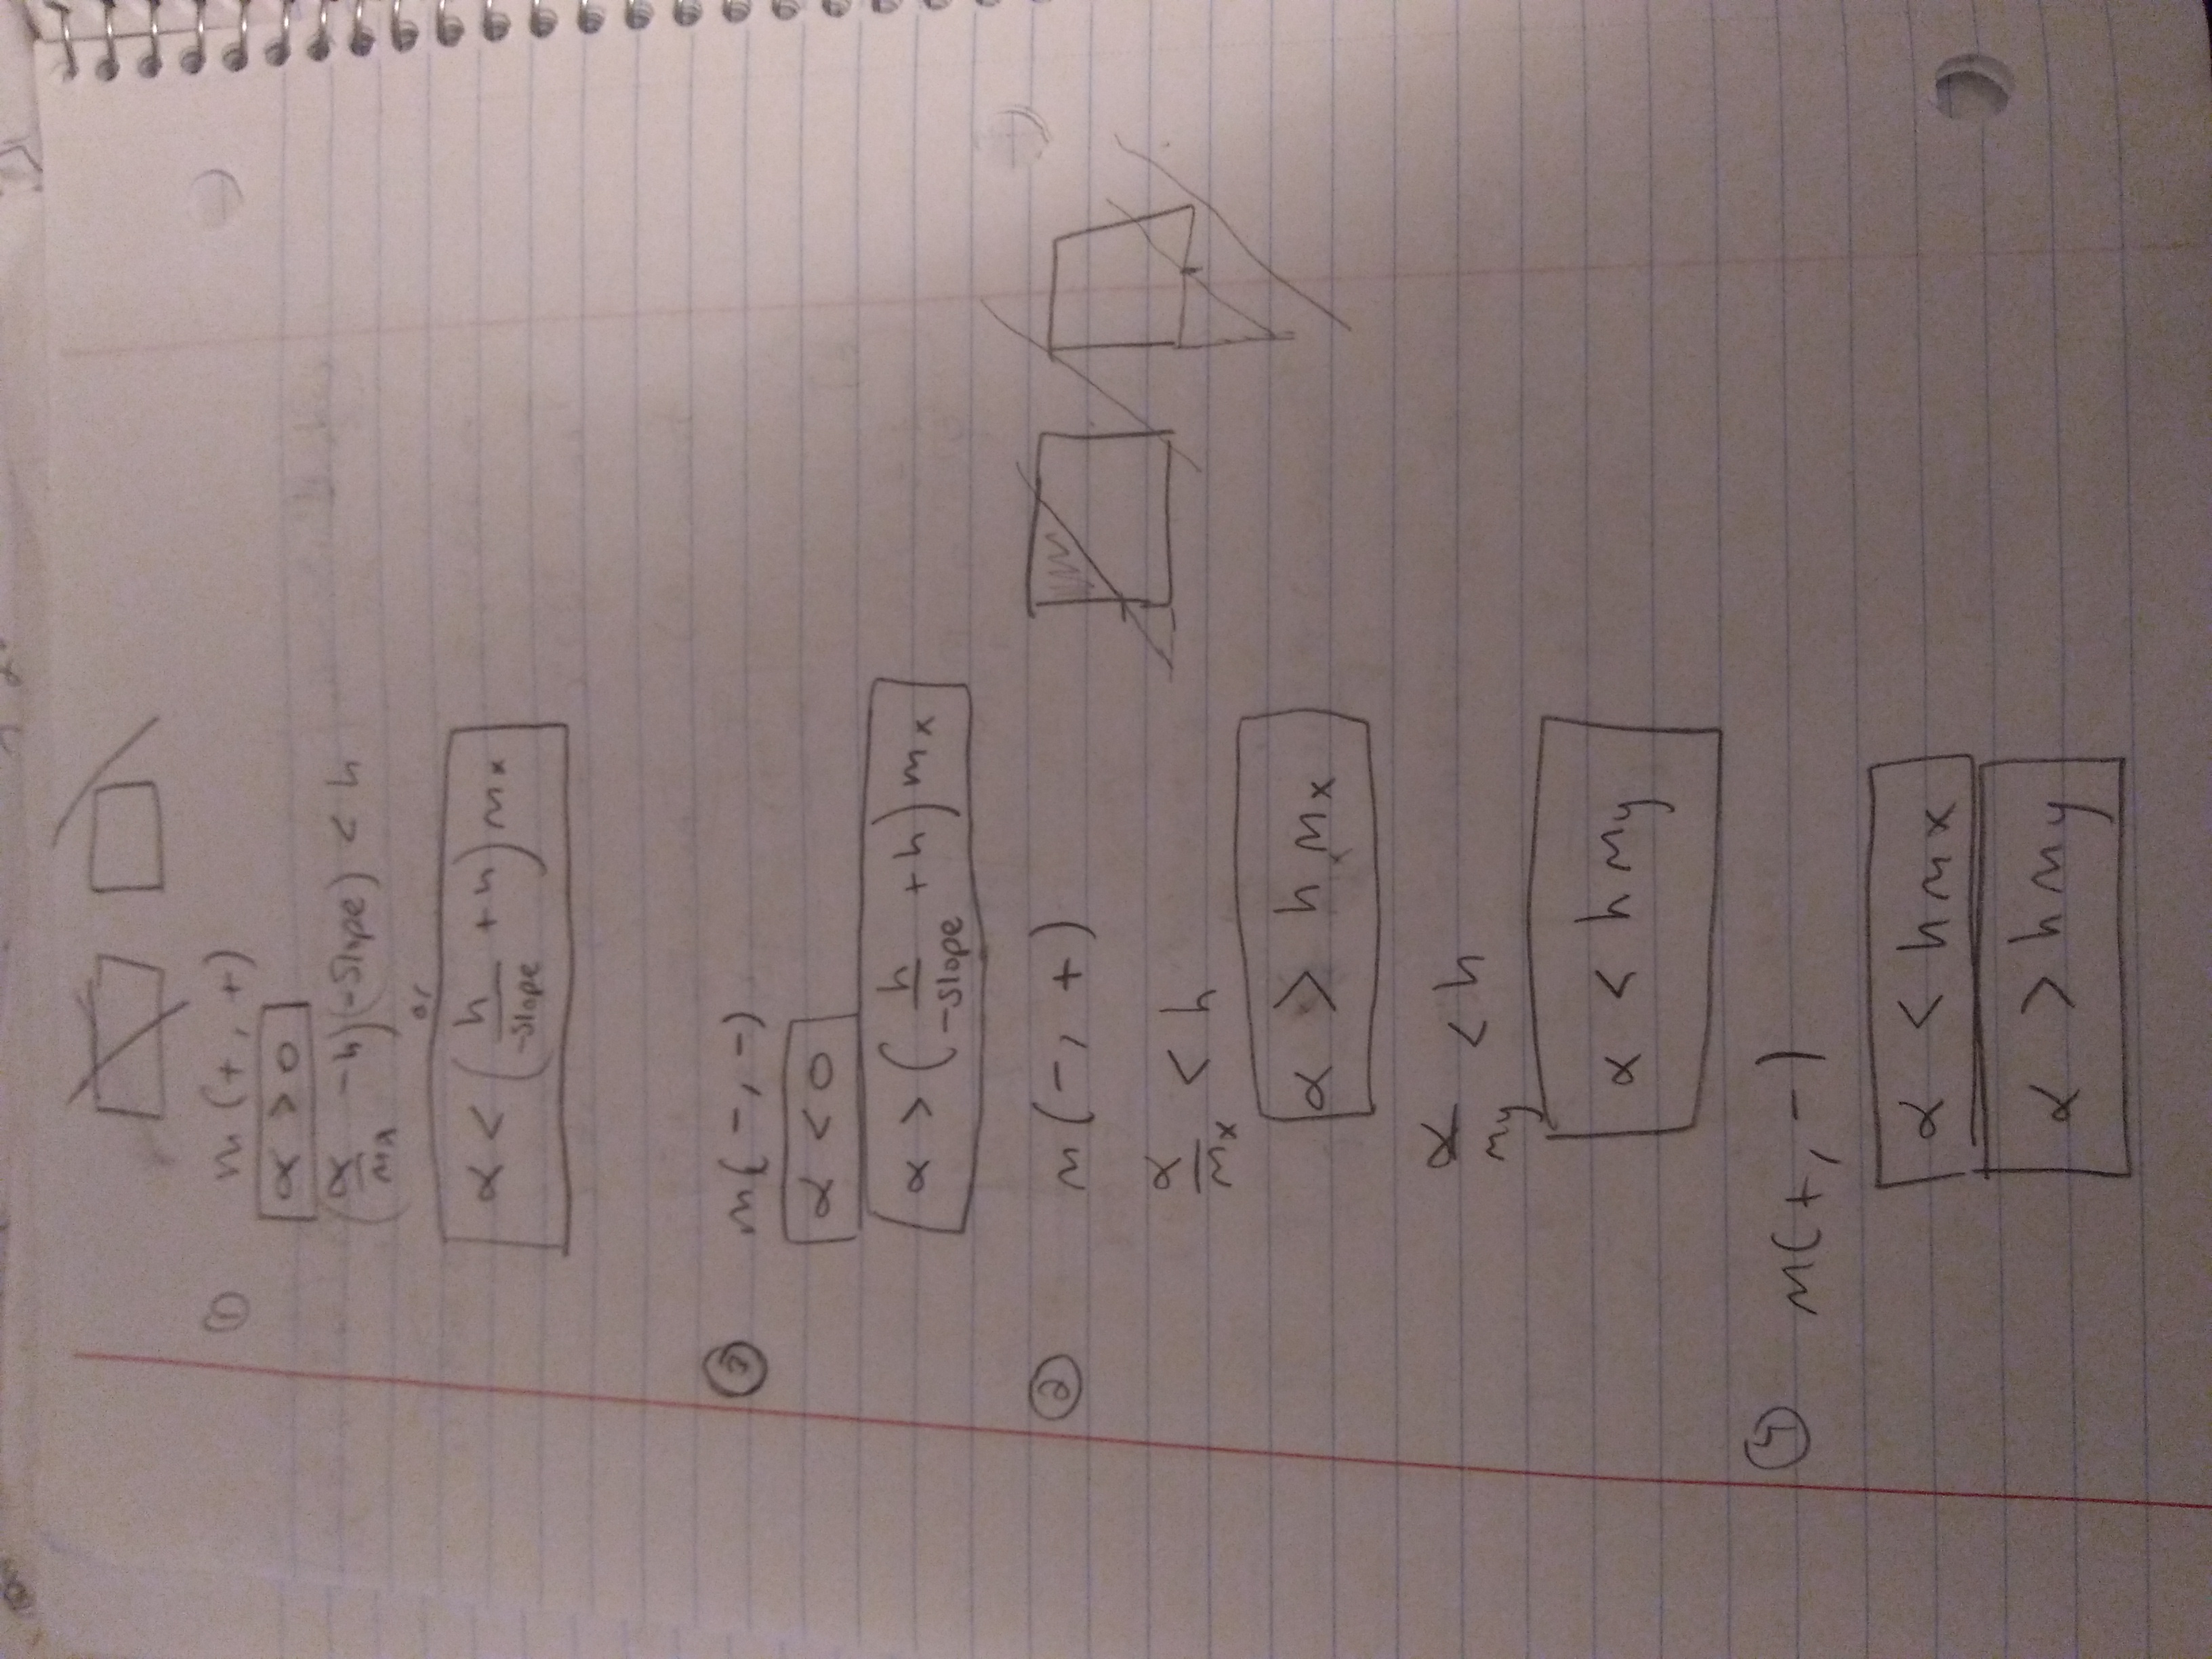 ① m(+, +)
α > 0
(α/mx - h)(-slope) < h
or
α < (h/-slope + h) mx
③ m(-, -)
α < 0
α > (h/-slope + h) mx
② m(-, +)
α/mx < h
α > h mx
α/my < h
α < h my
④ m(+, -)
α < h mx
α > h my